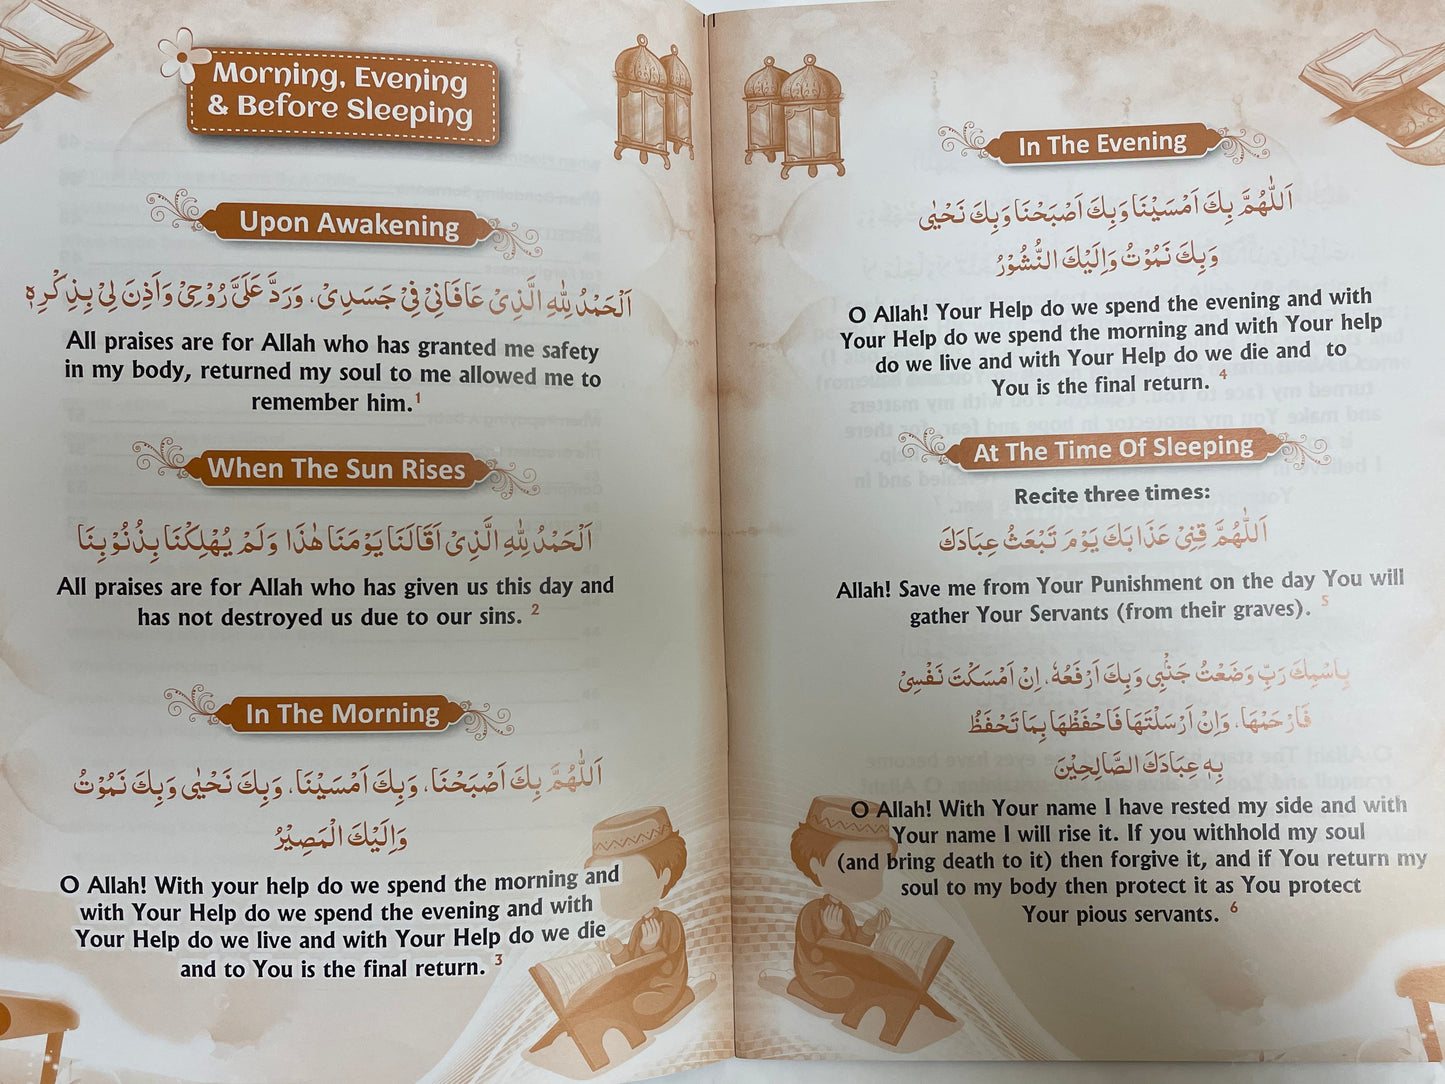 Morning, Evening
& Before Sleeping
Upon Awakening
اَلْحَمْدُ لِلّٰهِ الَّذِيْ عَافَانِيْ فِيْ جَسَدِيْ، وَرَدَّ عَلَيَّ رُوْحِيْ وَاَذِنَ لِيْ بِذِكْرِهٖ
All praises are for Allah who has granted me safety
in my body, returned my soul to me allowed me to
remember him.1
When The Sun Rises
اَلْحَمْدُ لِلّٰهِ الَّذِيْ اَقَالَنَا يَوْمَنَا هٰذَا وَلَمْ يُهْلِكْنَا بِذُنُوْبِنَا
All praises are for Allah who has given us this day and
has not destroyed us due to our sins. 2
In The Morning
اَللّٰهُمَّ بِكَ اَصْبَحْنَا، وَبِكَ اَمْسَيْنَا، وَبِكَ نَحْيٰى وَبِكَ نَمُوْتُ
وَاِلَيْكَ الْمَصِيْرُ
O Allah! With your help do we spend the morning and
with Your Help do we spend the evening and with
Your Help do we live and with Your Help do we die
and to You is the final return. 3
In The Evening
اَللّٰهُمَّ بِكَ اَمْسَيْنَا وَبِكَ اَصْبَحْنَا وَبِكَ نَحْيٰى
وَبِكَ نَمُوْتُ وَاِلَيْكَ النُّشُوْرُ
O Allah! Your Help do we spend the evening and with
Your Help do we spend the morning and with Your help
do we live and with Your Help do we die and to
You is the final return. 4
At The Time Of Sleeping
Recite three times:
اَللّٰهُمَّ قِنِيْ عَذَابَكَ يَوْمَ تَبْعَثُ عِبَادَكَ
Allah! Save me from Your Punishment on the day You will
gather Your Servants (from their graves). 5
بِاسْمِكَ رَبِّ وَضَعْتُ جَنْۢبِى وَبِكَ اَرْفَعُهٗ، اِنْ اَمْسَكْتَ نَفْسِيْ
فَارْحَمْهَا، وَاِنْ اَرْسَلْتَهَا فَاحْفَظْهَا بِمَا تَحْفَظُ
بِهٖ عِبَادَكَ الصَّالِحِيْنَ
O Allah! With Your name I have rested my side and with
Your name I will rise it. If you withhold my soul
(and bring death to it) then forgive it, and if You return my
soul to my body then protect it as You protect
Your pious servants. 6